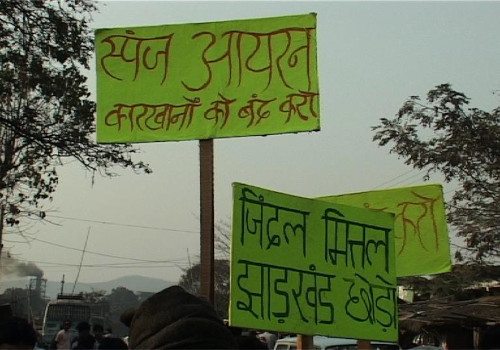 स्पंज आयरन
कारखानों को बंद करो
जिंदल मित्तल
झाड़खंड छोड़ो
करो